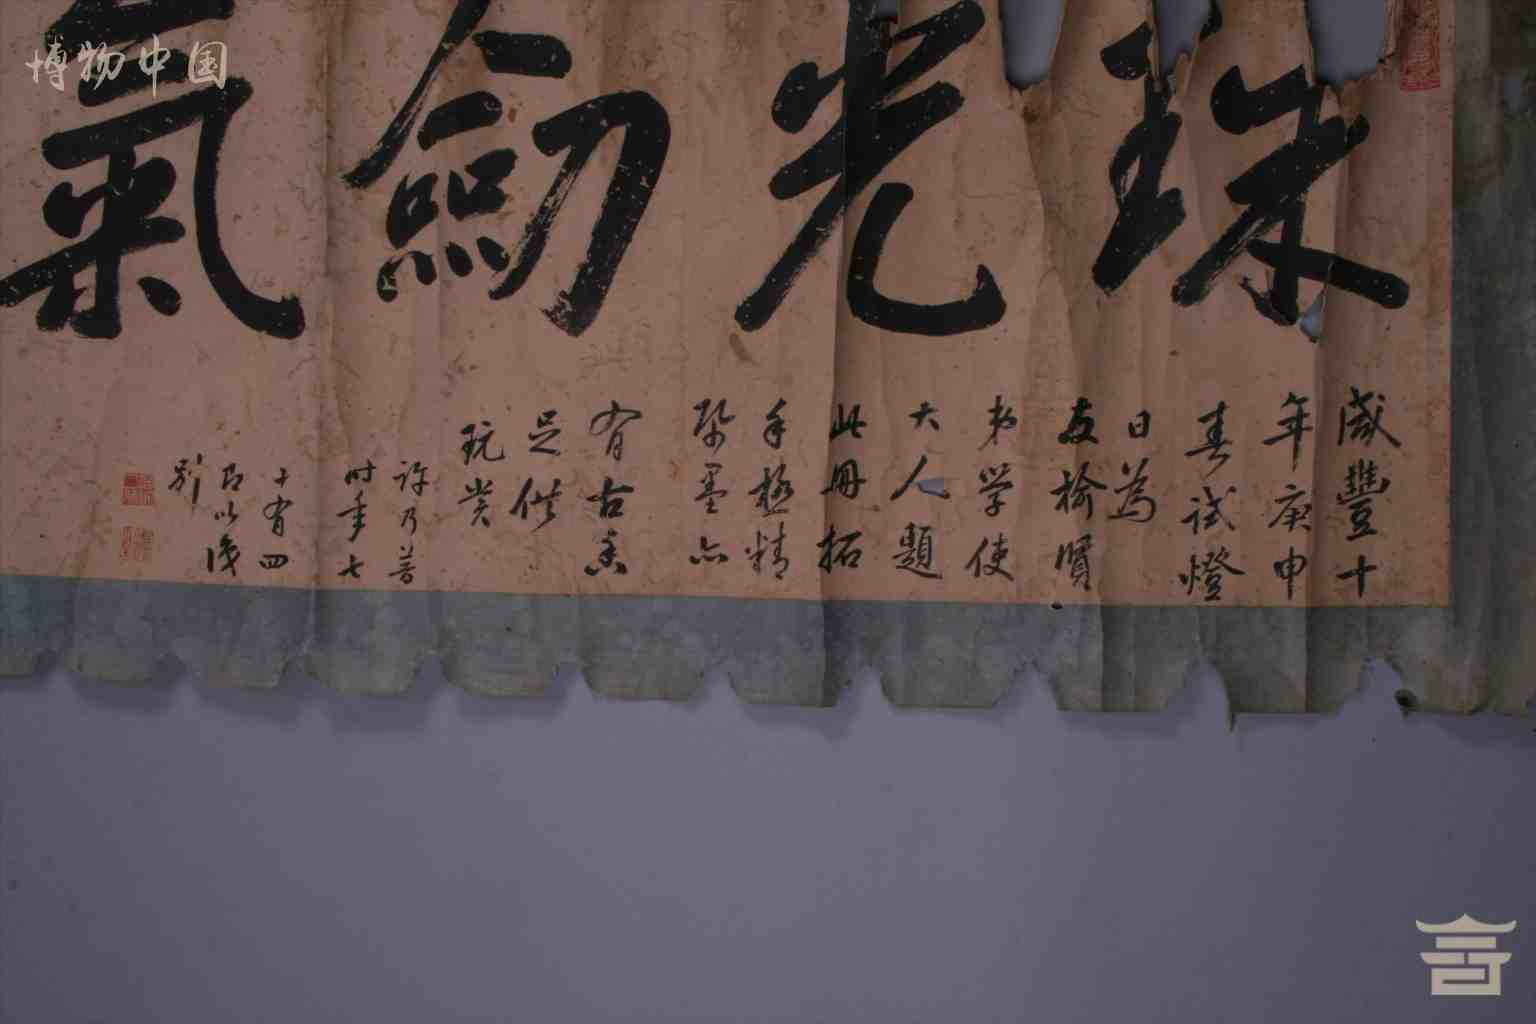 博物中国
珠光劍氣
咸豐十
年庚申
春試燈
日為
友榆賢
弟學使
大人題
此冊拓
手極精
紙墨亦
有古香
足供
玩賞
許乃普
時年七
十有四
即以誌
別